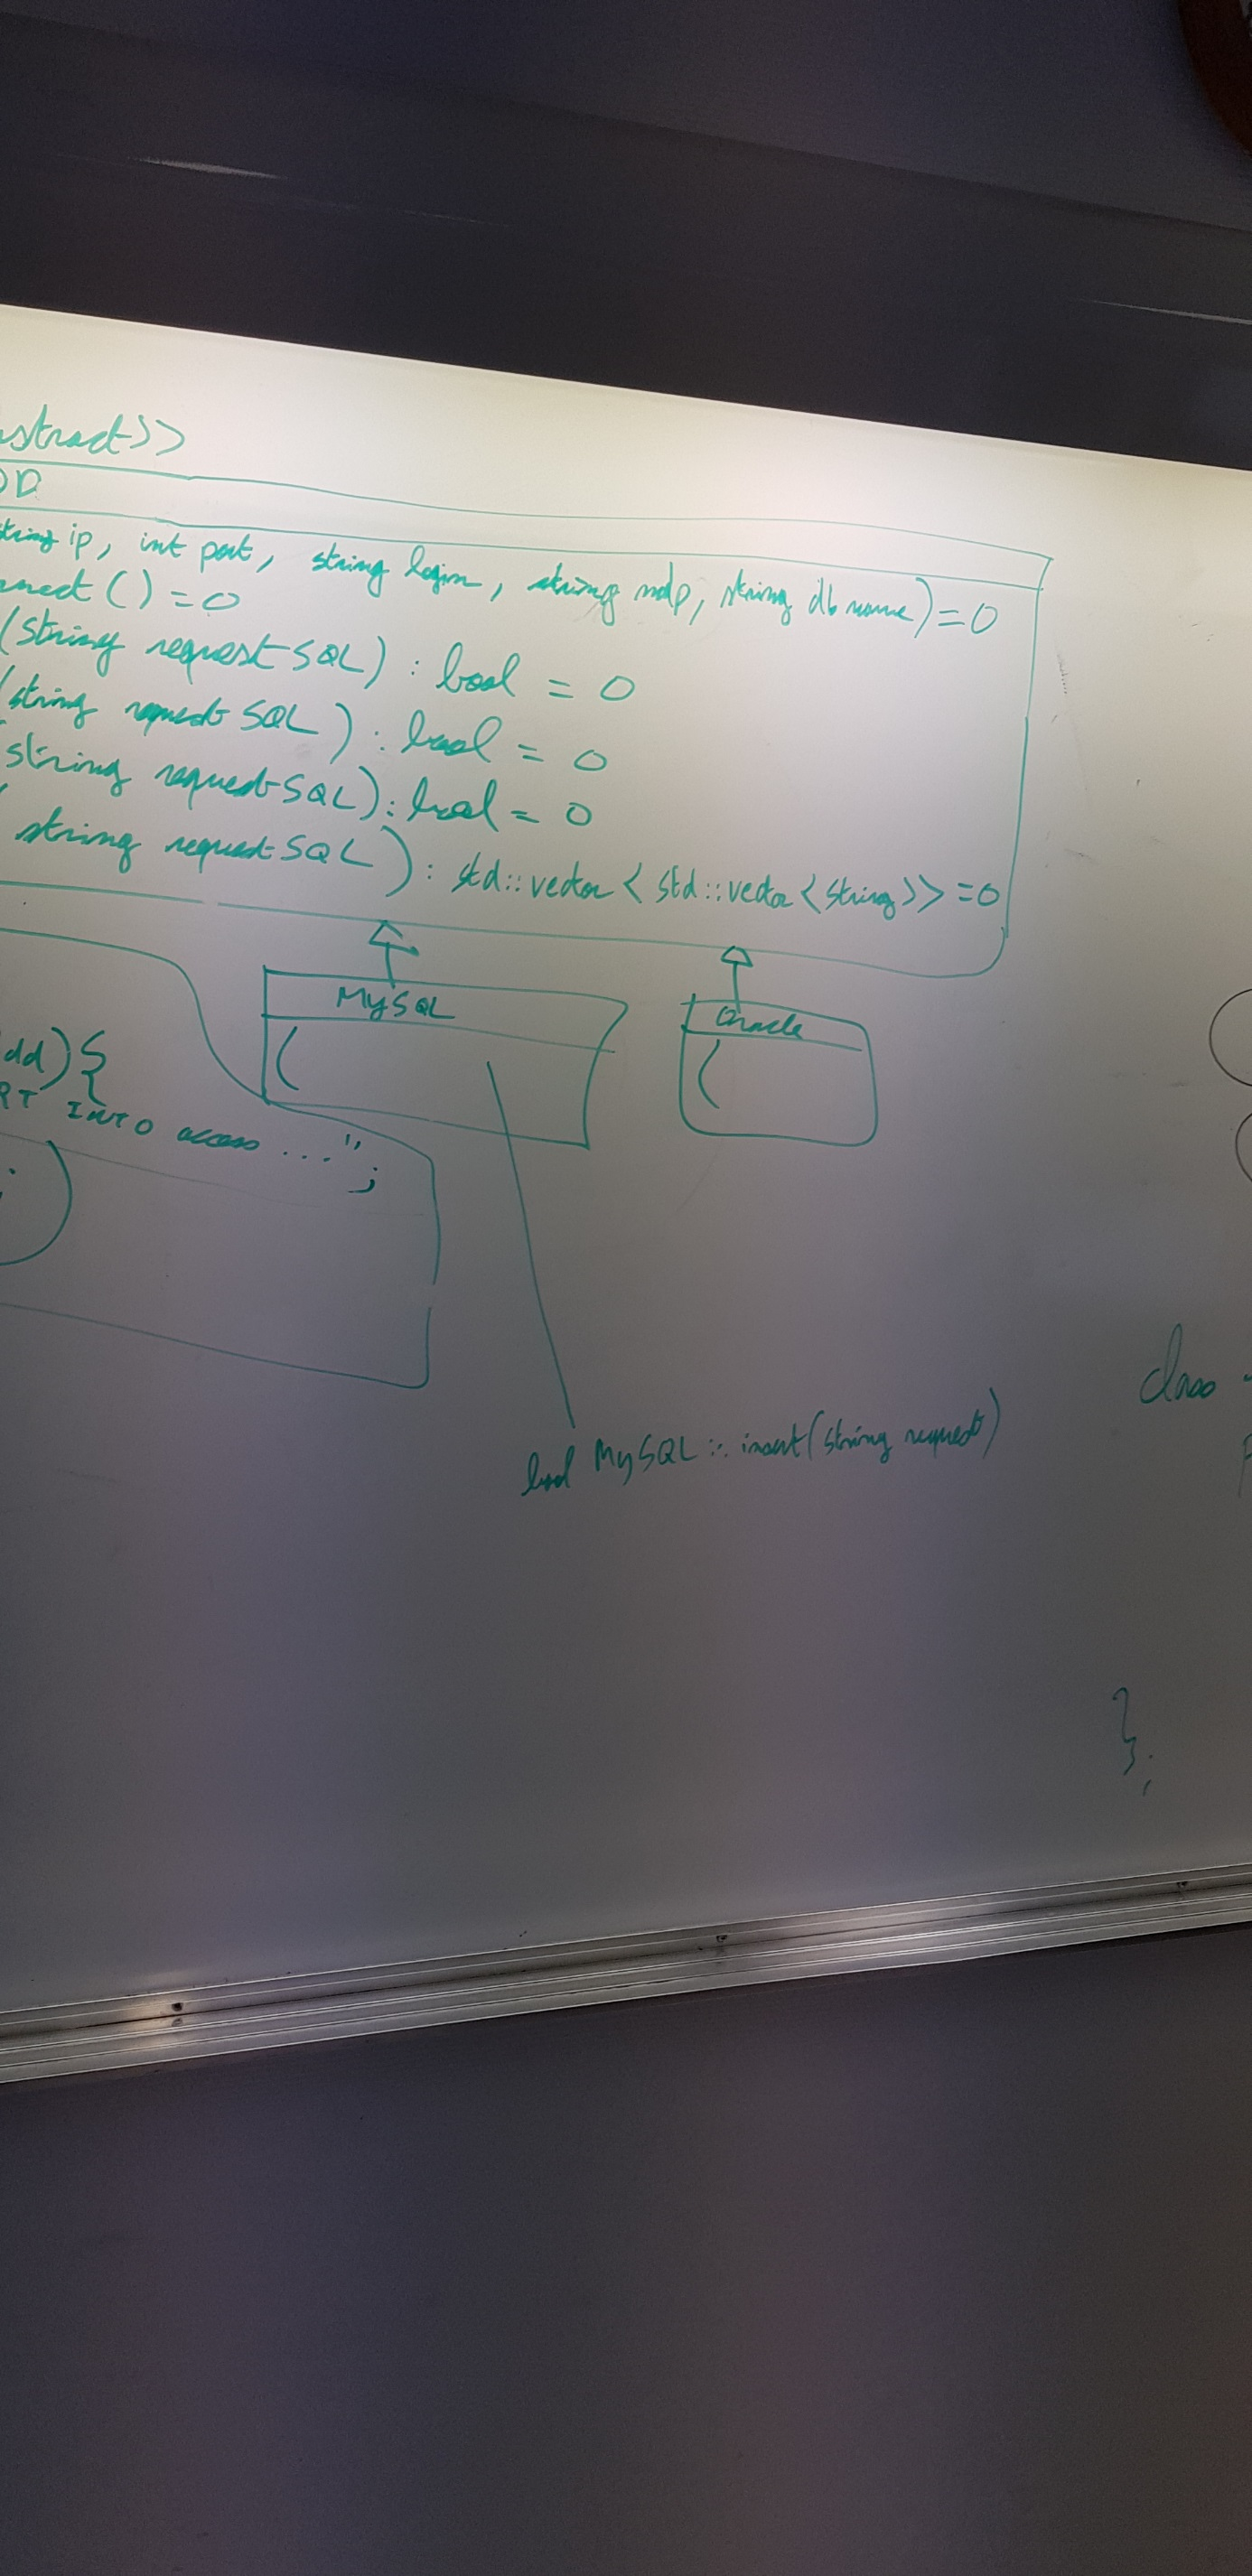 stract>>
DD
string ip, int port, string login, string mdp, string dbname) = 0
nnect () = 0
(string requestSQL) : bool = 0
(string requestSQL) : bool = 0
string requestSQL) : bool = 0
string requestSQL) : std::vector < std::vector <string>> = 0
MySQL
Oracle
dd) {
RT INTO access ... ";
;
bool MySQL :: insert (string request)
class
};